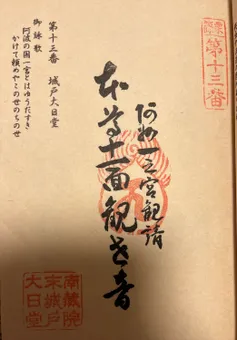 第十三番
阿州一之宮勧請
本尊十一面観世音
第十三番 城戸大日堂
御詠歌
阿波の国一宮とはゆうだすき
かけて頼めやこのせのちのせ
南蔵院
末城戸
大日堂